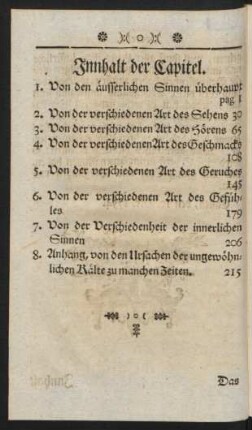 Innhalt der Capitel.
1. Von den äusserlichen Sinnen überhaupt
pag 1
2. Von der verschiedenen Art des Sehens 30
3. Von der verschiedenen Art des Hörens 65
4. Von der verschiedenen Art des Geschmacks
108
5. Von der verschiedenen Art des Geruches
145
6. Von der verschiedenen Art des Gefüh-
les 179
7. Von der Verschiedenheit der innerlichen
Sinnen 206
8. Anhang, von den Ursachen der ungewöhn-
lichen Kälte zu manchen Zeiten. 215
Das